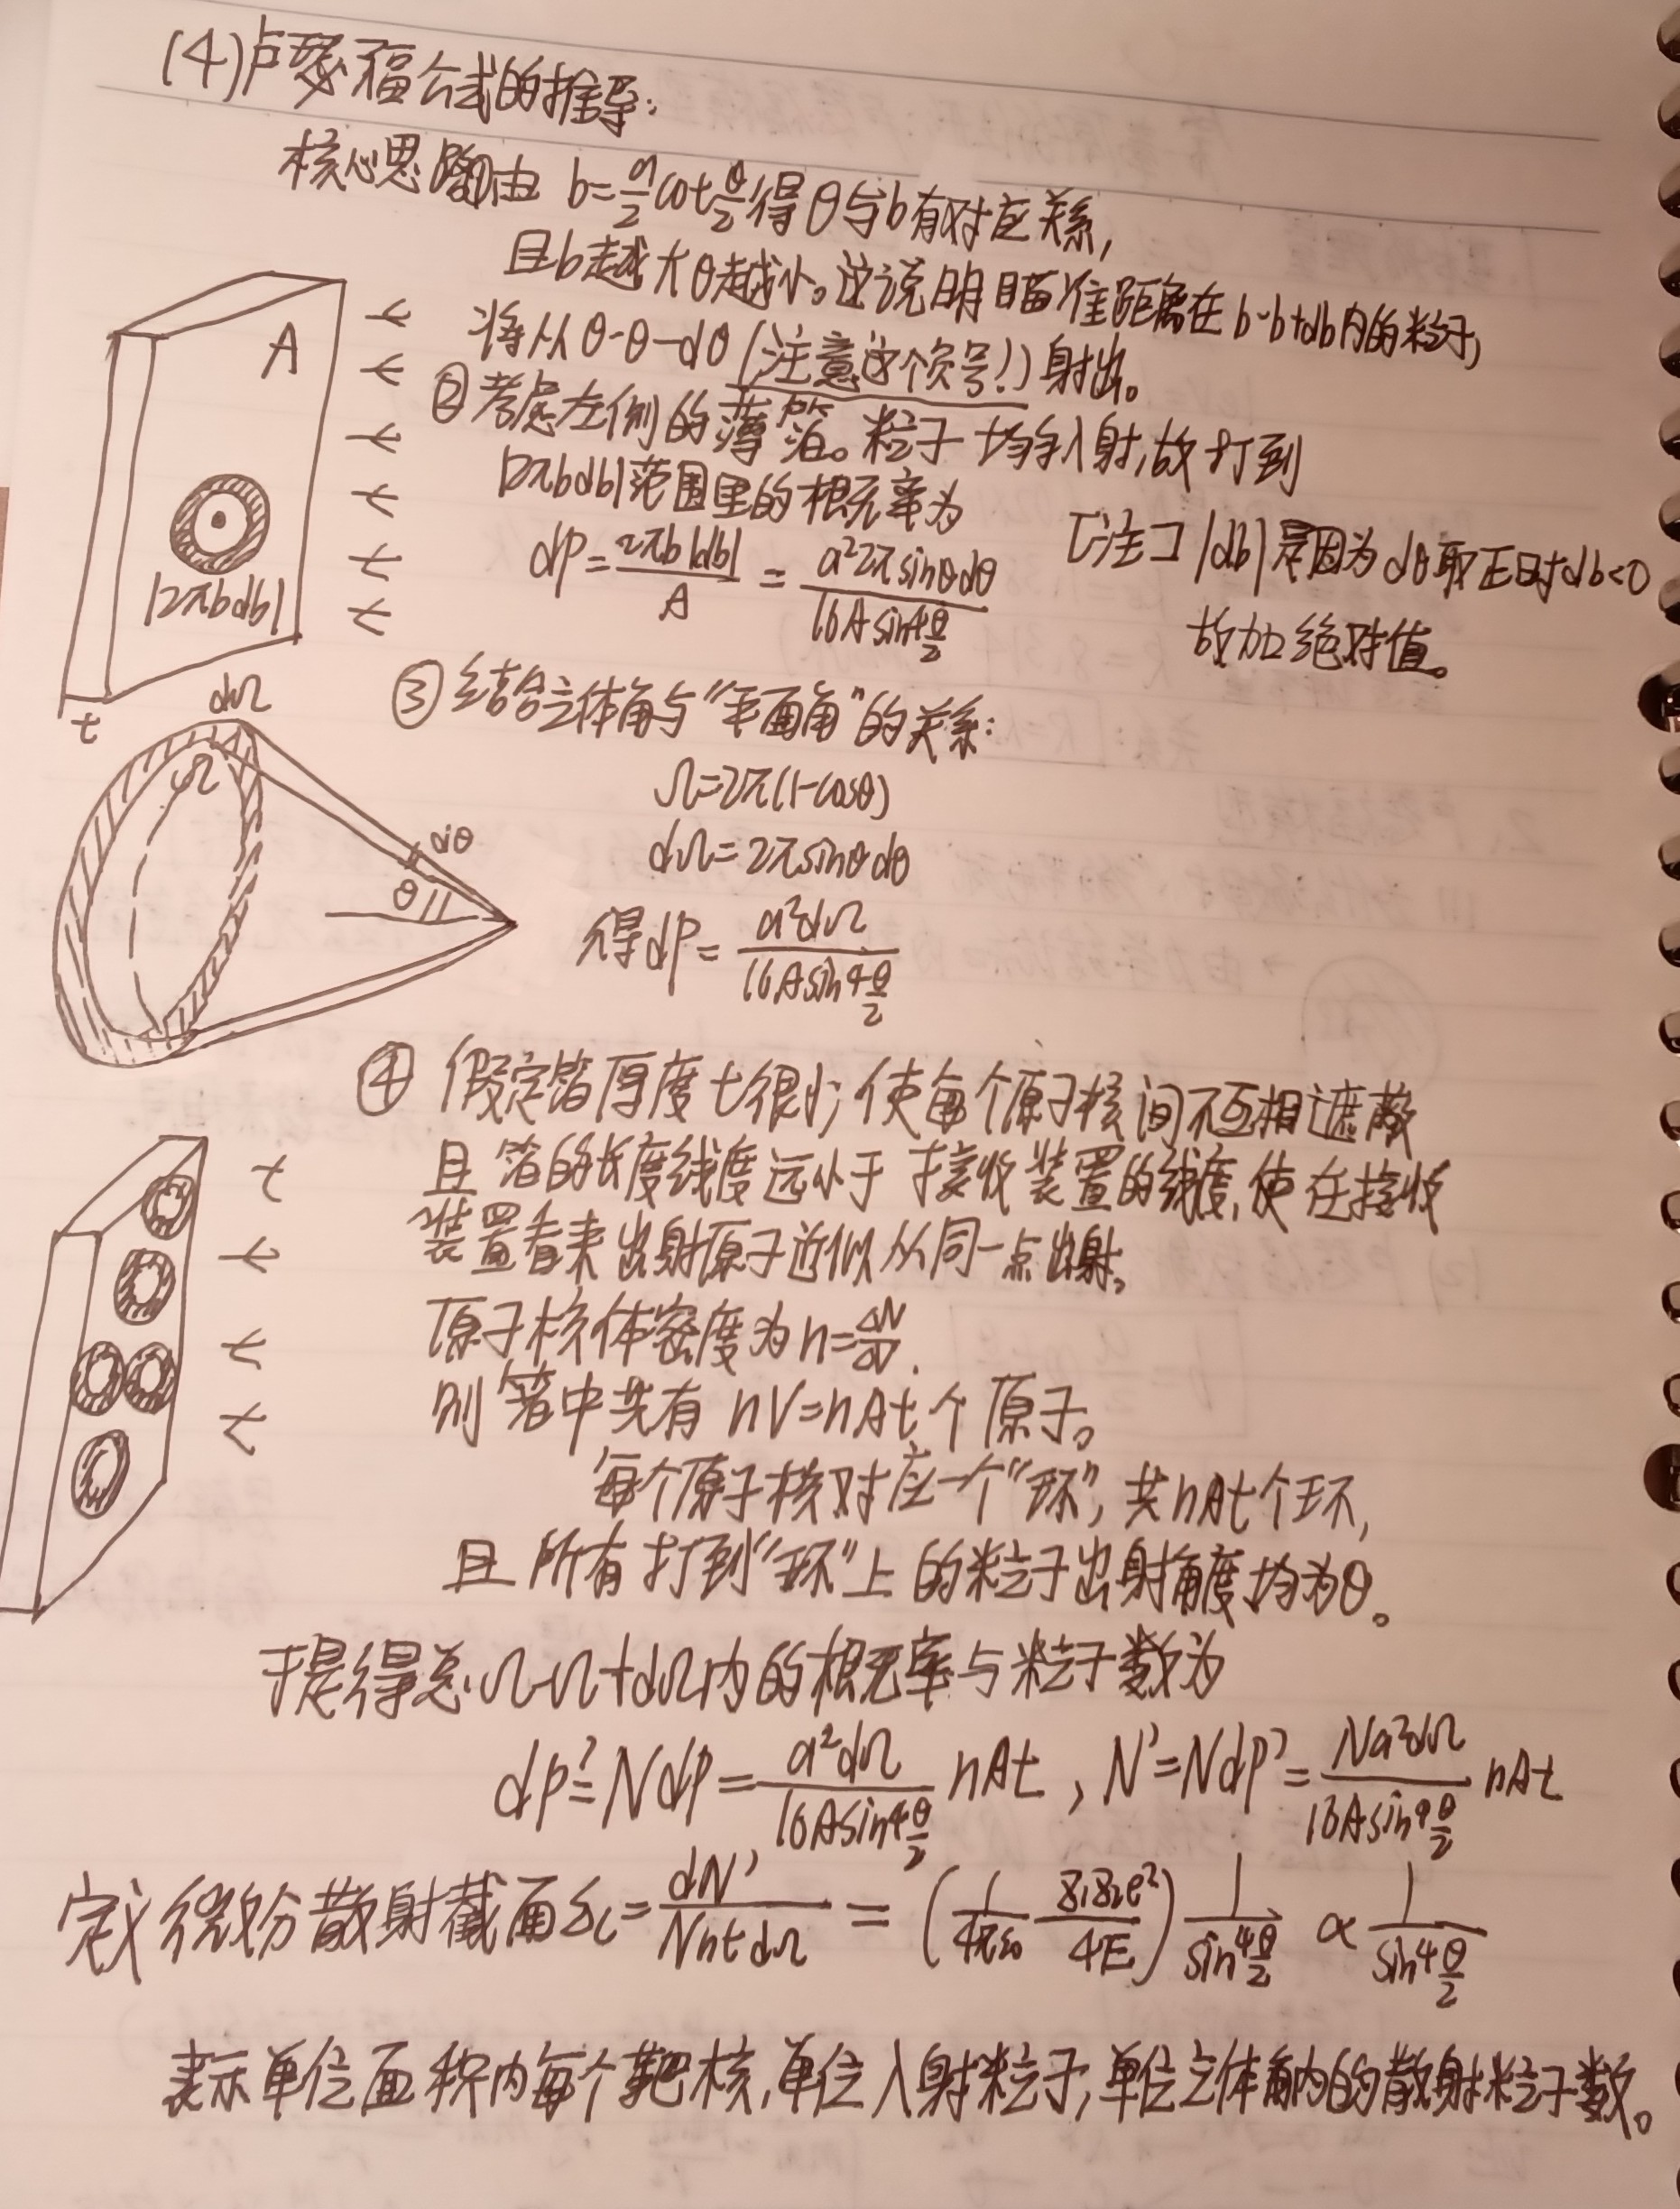 (4)卢瑟福公式的推导:
核心思路①由 b=a/2 cot θ/2 得 θ与b有对应关系,
且b越大θ越小。这说明瞄准距离在b-b+db内的粒子,
将从θ-θ-dθ(注意这个负号!)射出。
②考虑左侧的薄箔。粒子均匀入射,故打到
|2πbdb|范围里的概率为
dp=2πb|db|/A = a²2πsinθdθ/16Asin⁴θ/2
[注] |db|是因为dθ取正时db<0
故加绝对值。
A
|2πbdb|
t
③结合立体角与“平面角”的关系:
Ω=2π(1-cosθ)
dΩ=2πsinθdθ
得dp=a²dΩ/16Asin⁴θ/2
dΩ
Ω
dθ
θ
④假定箔厚度t很小,使每个原子核间不互相遮蔽
且箔的长度线度远小于接收装置的线度,使在接收
装置看来出射原子近似从同一点出射。
原子核体密度为n=ΔN/ΔV.
则箔中共有nV=nAt个原子。
每个原子核对应一个“环”,共nAt个环,
且所有打到“环”上的粒子出射角度均为θ。
于是得总Ω-Ω+dΩ内的概率与粒子数为
dp'=Ndp=a²dΩ/16Asin⁴θ/2 nAt , N'=Ndp'=Na²dΩ/16Asin⁴θ/2 nAt
定义微分散射截面σc=dN'/NntdΩ = (1/4πε₀ z₁z₂e²/4E) 1/sin⁴θ/2 ∝ 1/sin⁴θ/2
表示单位面积内每个靶核,单位入射粒子,单位立体角内的散射粒子数。